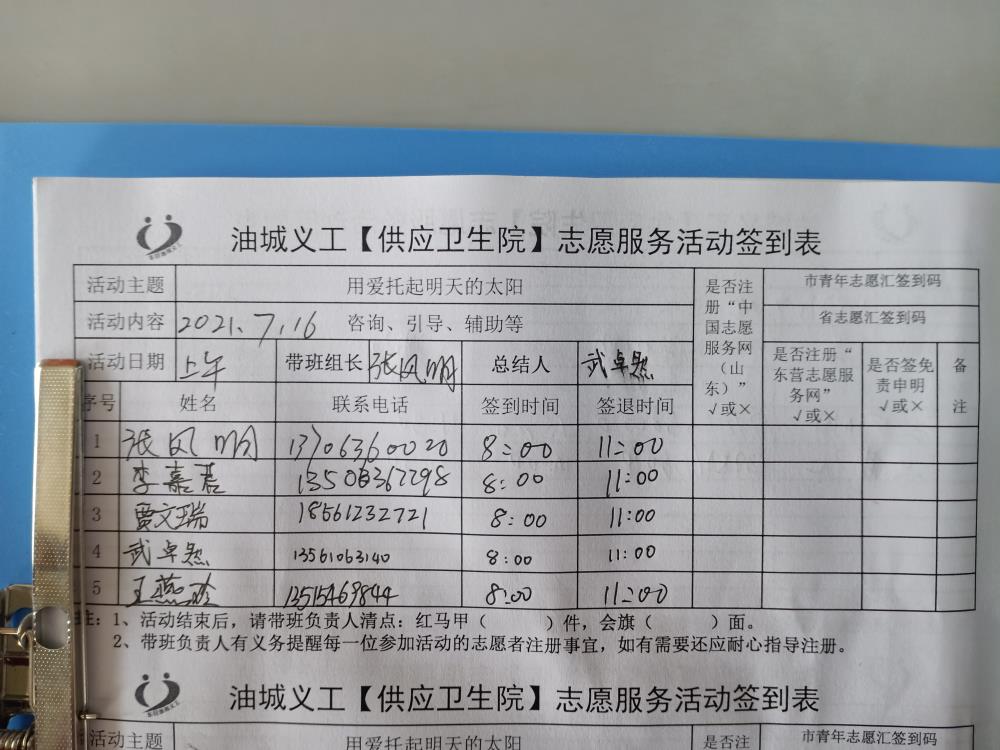 油城义工【供应卫生院】志愿服务活动签到表
活动主题 用爱托起明天的太阳 是否注册“中国志愿服务网（山东）”√或× 市青年志愿汇签到码
活动内容 2021.7.16 咨询、引导、辅助等 省志愿汇签到码
活动日期 上午 带班组长 张凤明 总结人 武卓然 是否注册“东营志愿服务网”√或× 是否签免责申明√或× 备注
序号 姓名 联系电话 签到时间 签退时间
1 张凤明 13706360020 8:00 11:00
2 李嘉茗 8:00 11:00
3 贾文瑞 18561232721 8:00 11:00
4 武卓然 13561063140 8:00 11:00
5 王燕珍 13515469844 8:00 11:00
注：1、活动结束后，请带班负责人清点：红马甲（ ）件，会旗（ ）面。
2、带班负责人有义务提醒每一位参加活动的志愿者注册事宜，如有需要还应耐心指导注册。
油城义工【供应卫生院】志愿服务活动签到表
活动主题 用爱托起明天的太阳 是否注 市青年志愿汇签到码